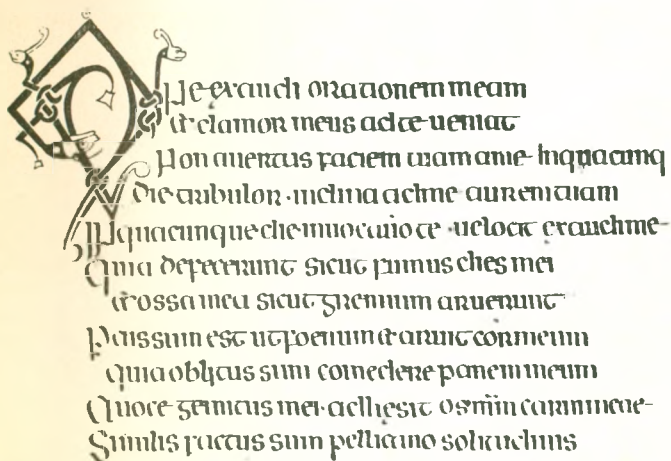 DNe exaudi orationem meam
et clamor meus ad te ueniat
Non auertas faciem tuam a me Inquacumq
die tribulor · inclina ad me aurem tuam
INquacumque die inuocauero te · uelocit exaudi me
Quia defecerunt sicut fumus dies mei
et ossa mea sicut gremium aruerunt
Pcussum est ut foenum et aruit cor meum
quia oblitus sum comedere panem meum
Auoce gemitus mei · adhesit os mm carni meae
Similis factus sum pellicano solitudinis